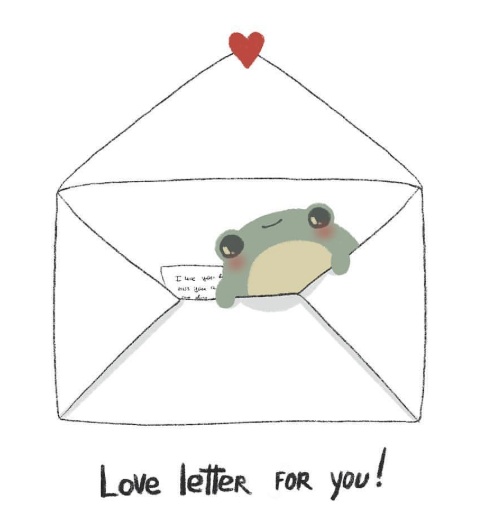 I love you
miss you
Love letter FOR YOU!